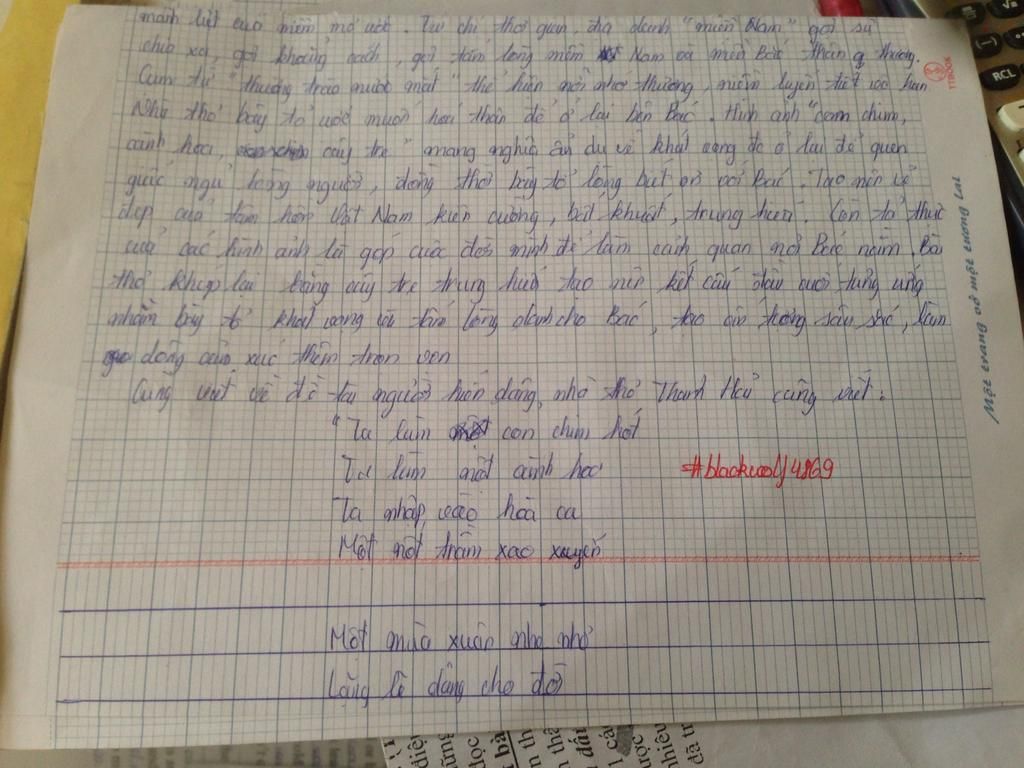 mãnh liệt của niềm mơ ước. Từ chỉ thời gian, địa danh "miền Nam" gợi sự
chia xa, gợi khoảng cách, gợi tấm lòng miền Nam và miền Bắc thân thương.
Cụm từ "thương trào nước mắt" thể hiện nỗi nhớ thương, niềm luyến tiết vô hạn
Nhà thơ bày tỏ ước muốn hoá thân để ở lại bên Bác. Hình ảnh "con chim,
cành hoa, cây tre" mang nghĩa ẩn dụ về khát vọng để ở lại để quen
giấc ngủ lòng người, đồng thời bày tỏ lòng biết ơn với Bác. Tạo nên vẻ
đẹp của tâm hồn Việt Nam kiên cường, bất khuất, trung hiếu. Còn tả thực
của các hình ảnh là góp cuộc đời mình để làm cảnh quan nơi Bác nằm. Bài
thơ khép lại bằng cây tre trung hiếu tạo nên kết cấu đầu cuối tương ứng
nhằm bày tỏ khát vọng và tấm lòng dành cho Bác, tạo ấn tượng sâu sắc, làm
dòng cảm xúc thêm trọn vẹn
Cùng viết về đề tài người hiến dâng, nhà thơ Thanh Hải cũng viết:
"Ta làm con chim hót
Ta làm một cành hoa
#blackwolf4869
Ta nhập vào hoà ca
Một nốt trầm xao xuyến
Một mùa xuân nho nhỏ
Lặng lẽ dâng cho đời
Một trang vở một tương lai
TTBOOK
RCL